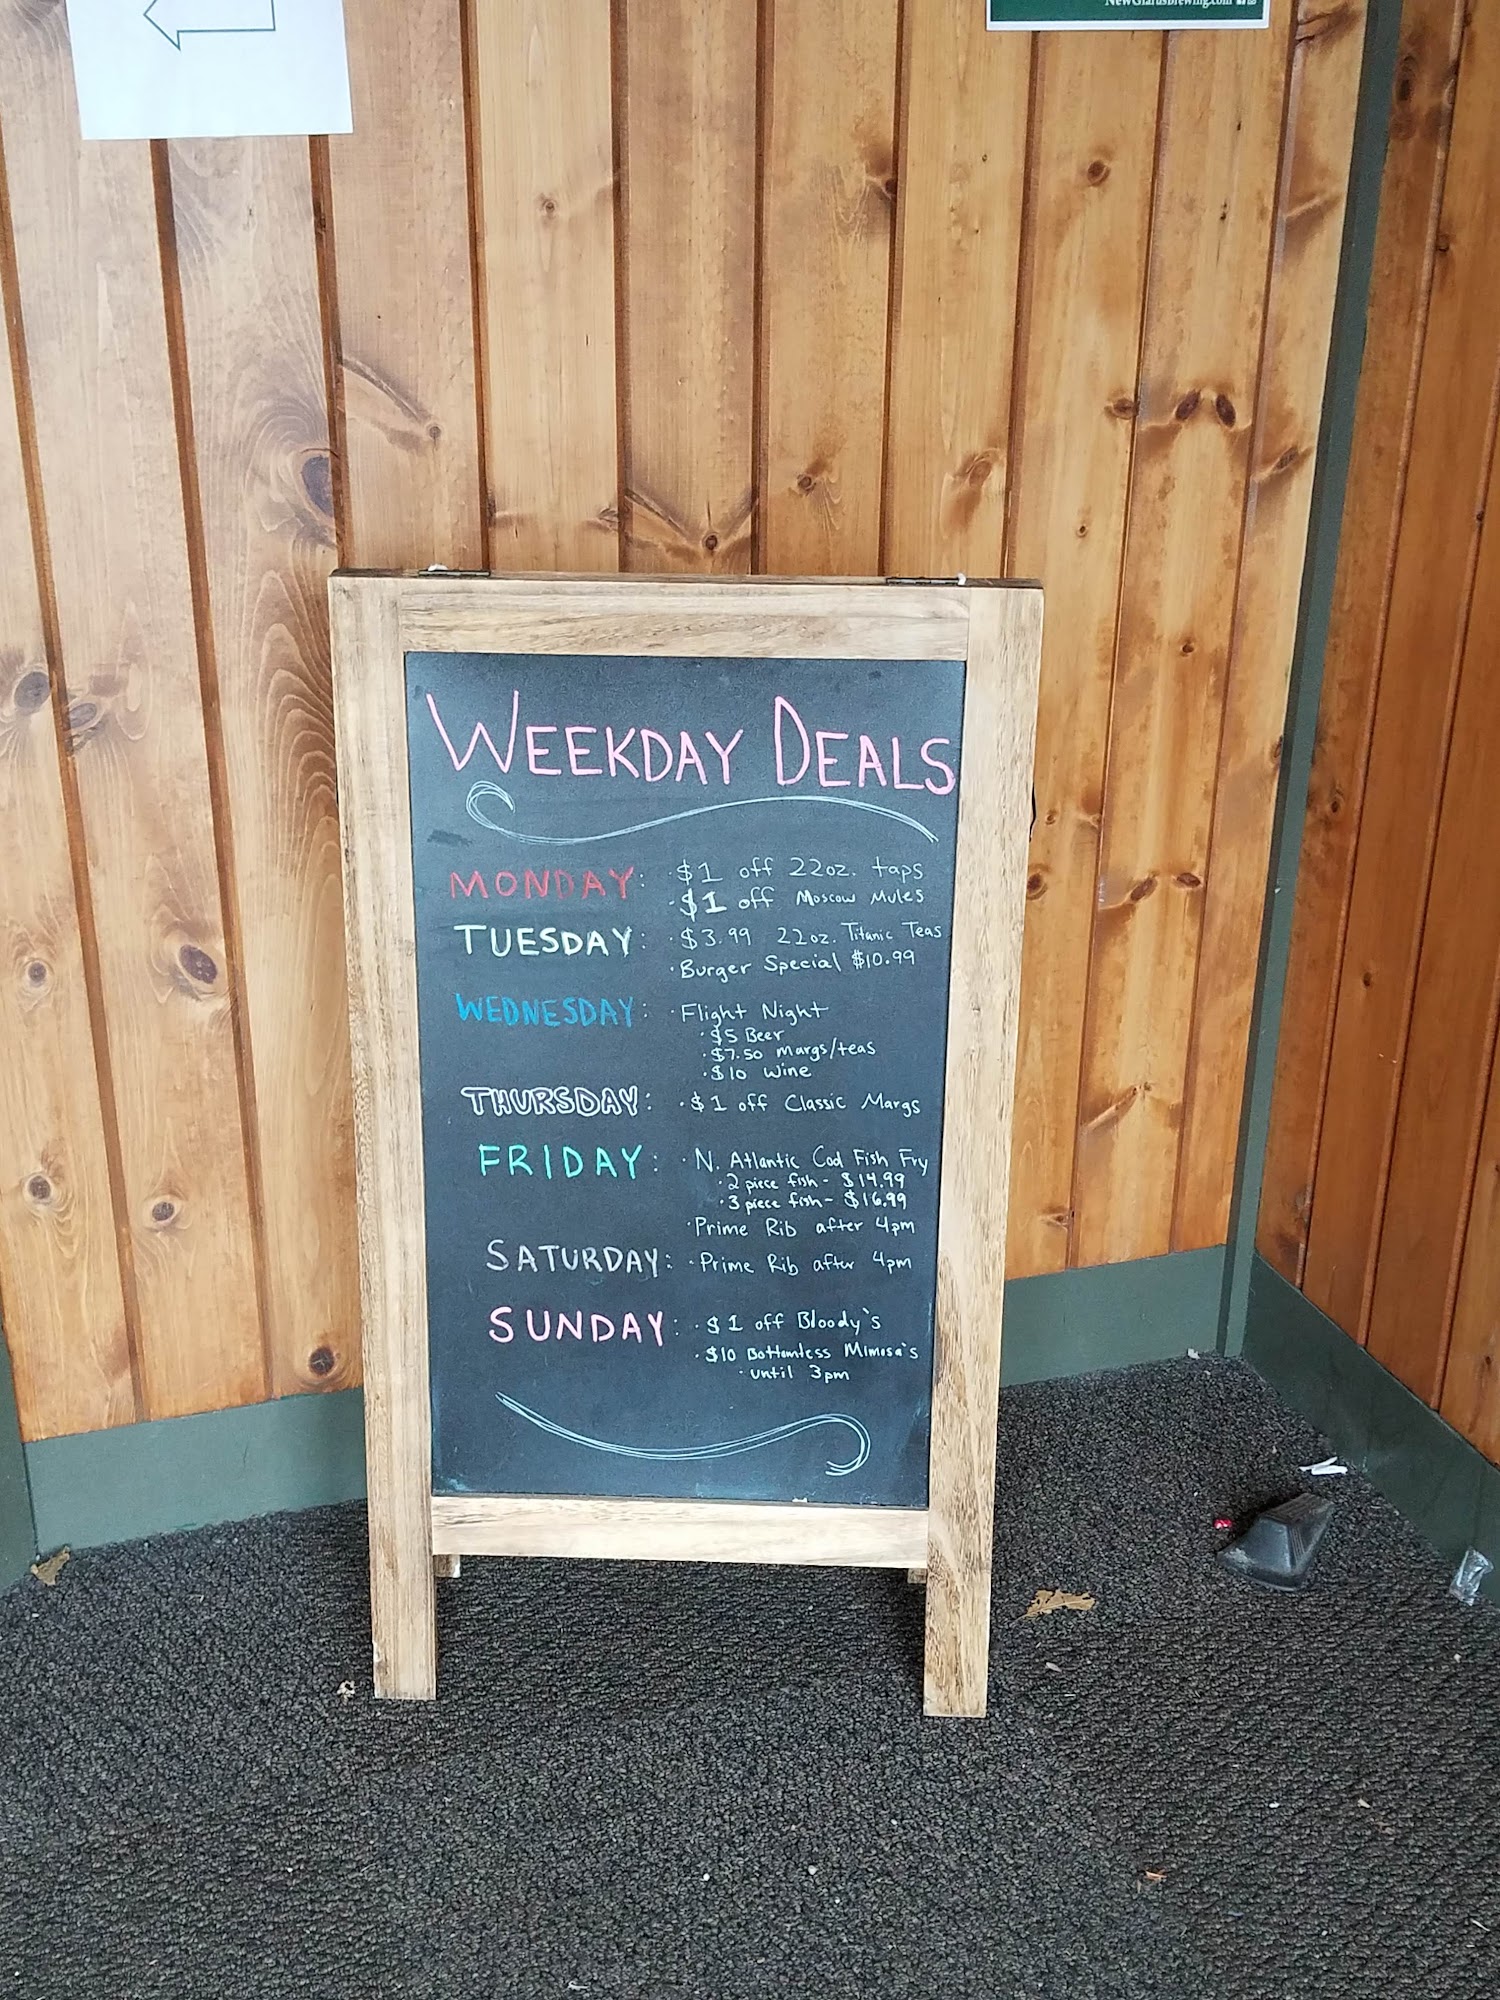 NewGlarusBrewing.com
WEEKDAY DEALS
MONDAY: · $1 off 22oz. taps
· $1 off Moscow Mules
TUESDAY: · $3.99 22oz. Titanic Teas
· Burger Special $10.99
WEDNESDAY: · Flight Night
· $5 Beer
· $7.50 margs/teas
· $10 wine
THURSDAY: · $1 off Classic Margs
FRIDAY: · N. Atlantic Cod Fish Fry
· 2 piece fish - $14.99
· 3 piece fish - $16.99
· Prime Rib after 4pm
SATURDAY: · Prime Rib after 4pm
SUNDAY: · $1 off Bloody's
· $10 Bottomless Mimosa's
· until 3pm